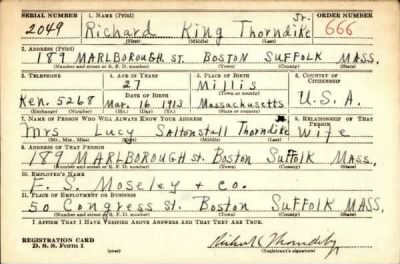 SERIAL NUMBER 1. NAME (Print) ORDER NUMBER
2049 Richard King Thorndike Jr. 666
(First) (Middle) (Last)
2. ADDRESS (Print)
189 MARLBOROUGH ST. BOSTON SUFFOLK MASS.
(Number and street or R. F. D. number) (Town) (County) (State)
3. TELEPHONE 4. AGE IN YEARS 5. PLACE OF BIRTH 6. COUNTRY OF CITIZENSHIP
27 Millis
DATE OF BIRTH (Town or county)
Ken. 5268 Mar. 16 1913 Massachusetts U.S.A.
(Exchange) (Number) (Mo.) (Day) (Yr.) (State or country)
7. NAME OF PERSON WHO WILL ALWAYS KNOW YOUR ADDRESS 8. RELATIONSHIP OF THAT PERSON
Mrs Lucy Saltonstall Thorndike Wife
(Mr., Mrs., Miss) (First) (Middle) (Last)
9. ADDRESS OF THAT PERSON
189 MARLBOROUGH St. Boston Suffolk Mass.
(Number and street or R. F. D. number) (Town) (County) (State)
10. EMPLOYER'S NAME
F. S. Moseley + co.
11. PLACE OF EMPLOYMENT OR BUSINESS
50 Congress St. Boston SUFFOLK MASS.
(Number and street or R. F. D. number) (Town) (County) (State)
I AFFIRM THAT I HAVE VERIFIED ABOVE ANSWERS AND THAT THEY ARE TRUE.
REGISTRATION CARD
D. S. S. Form 1 (over) Richard K Thorndike Jr
(Registrant's signature)